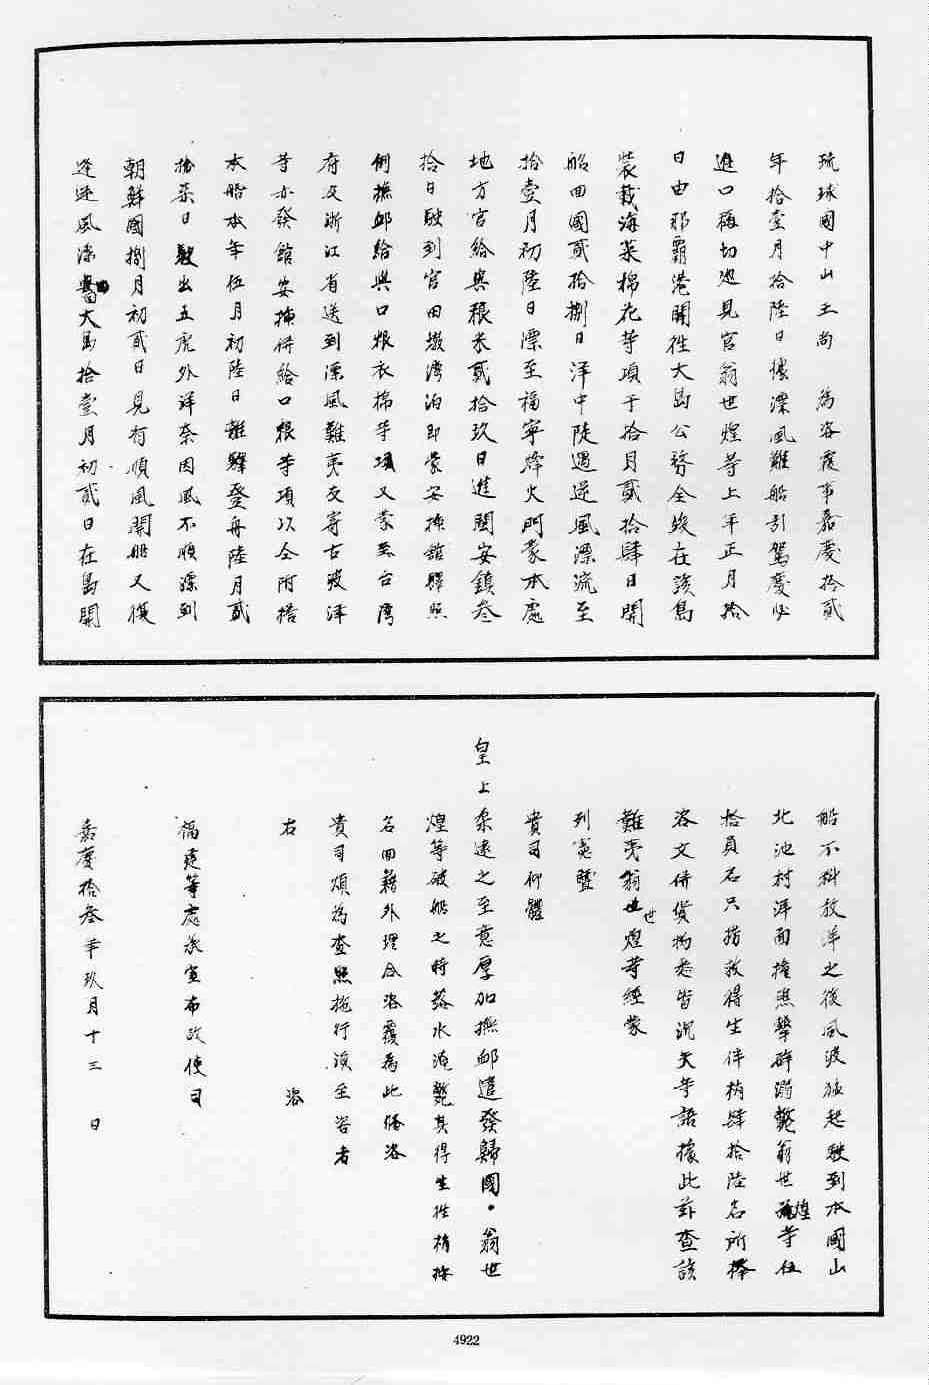 琉球國中山王尚　為咨覆事嘉慶拾貳
年拾壹月拾陸日據漂風難船引駕慶必
進口稱切迆見官翁世煌等上年正月拾
日由那霸港開徃大島公務全竣在該島
裝載海菜棉花等項于拾月貳拾肆日開
船回國貳拾捌日洋中陡遇逆風漂流至
拾壹月初陸日漂至福寧烽火門蒙本處
地方官給與粮米貳拾玖日進閩安鎮叁
拾日駛到官田墩灣泊即蒙安揷舘驛照
例撫卹給與口粮衣棉等項又蒙台灣
府及浙江省送到漂風難夷友寄古破洋
等亦發館安揷併給口粮等項以仝附搭
本船本年伍月初陸日離驛登舟陸月貳
拾柒日駛出五虎外洋奈因風不順漂到
朝鮮國捌月初貳日見有順風開船又復
逢逆風漂大島拾壹月初貳日在島開
船不料放洋之後風波猛起駛到本國山
北池村洋面撞礁擊碎溺斃翁世煌等伍
拾員名只撈救得生伴梢肆拾陸名所捧
咨文併貨物悉皆沉失等語據此茲查該
難夷翁世煌等經蒙
列憲暨
貴司仰體
皇上柔遠之至意厚加撫卹遣發歸國・翁世
煌等破船之時落水淹斃其得生徃梢
名回籍外理合咨覆為此俻咨
貴司煩為查照施行須至咨者
右　咨
福建等處承宣布政使司
嘉慶拾叁年玖月十三　日
4922